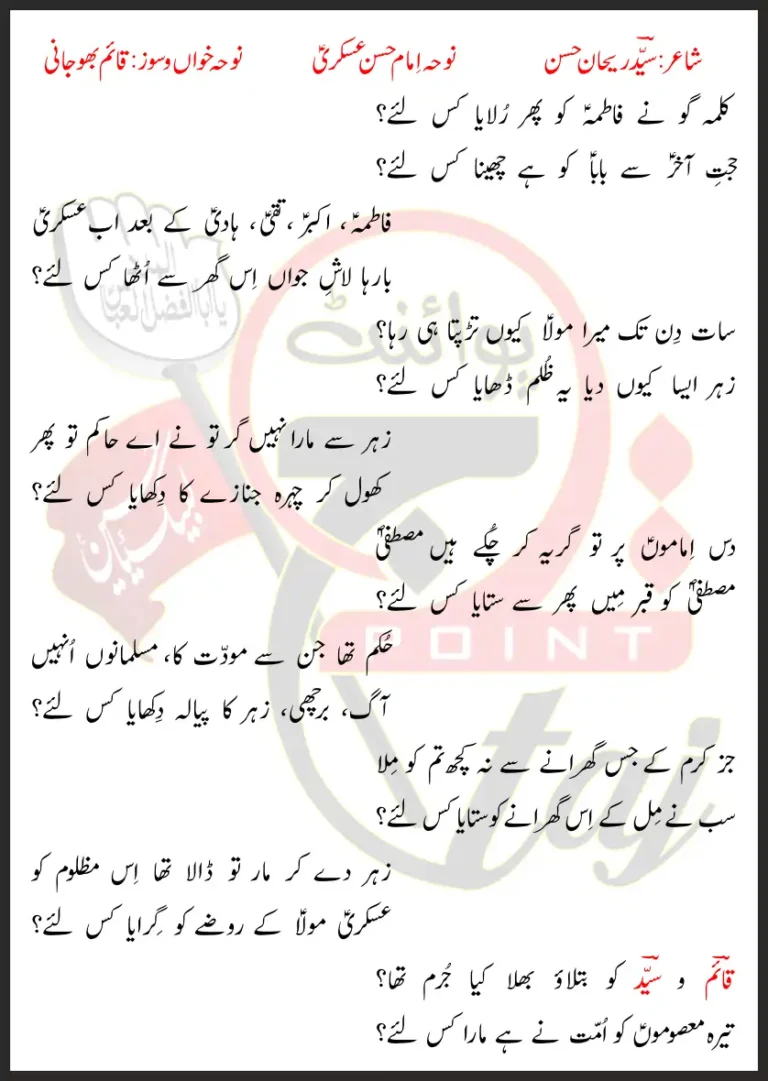 شاعر: سیّد ریحان حسن نوحہ اِمام حسن عسکریؑ نوحہ خواں و سوز: قائم بھوجانی
کلمہ گو نے فاطمہؑ کو پھر رُلایا کس لئے؟
حجتِ آخرؑ سے باباؑ کو ہے چھینا کس لئے؟
فاطمہؑ، اکبرؑ، تقیؑ، ہادیؑ کے بعد اب عسکریؑ
بارہا لاشِ جواں اِس گھر سے اُٹھا کس لئے؟
سات دِن تک میرا مولاؑ کیوں تڑپتا ہی رہا؟
زہر ایسا کیوں دیا یہ ظُلم ڈھایا کس لئے؟
زہر سے مارا نہیں گر تو نے اے حاکم تو پھر
کھول کر چہرہ جنازے کا دِکھایا کس لئے؟
دس اِماموںؑ پر تو گریہ کر چُکے ہیں مصطفیٰؐ
مصطفیٰؐ کو قبر مِیں پھر سے ستایا کس لئے؟
حُکم تھا جن سے مودّت کا، مسلمانوں اُنہیں
آگ، برچھی، زہر کا پیالہ دِکھایا کس لئے؟
جز کرم کے جس گھرانے سے نہ کچھ تم کو مِلا
سب نے مِل کے اِس گھرانے کو ستایا کس لئے؟
زہر دے کر مار تو ڈالا تھا اِس مظلوم کو
عسکریؑ مولاؑ کے روضے کو گِرایا کس لئے؟
قائم و سیّد کو بتلاؤ بھلا کیا جُرم تھا؟
تیرہ معصوموںؑ کو اُمّت نے ہے مارا کس لئے؟
پوائنٹ
POINT
taj
لبیک یا حسینؑ
یا ابا الفضل العباس